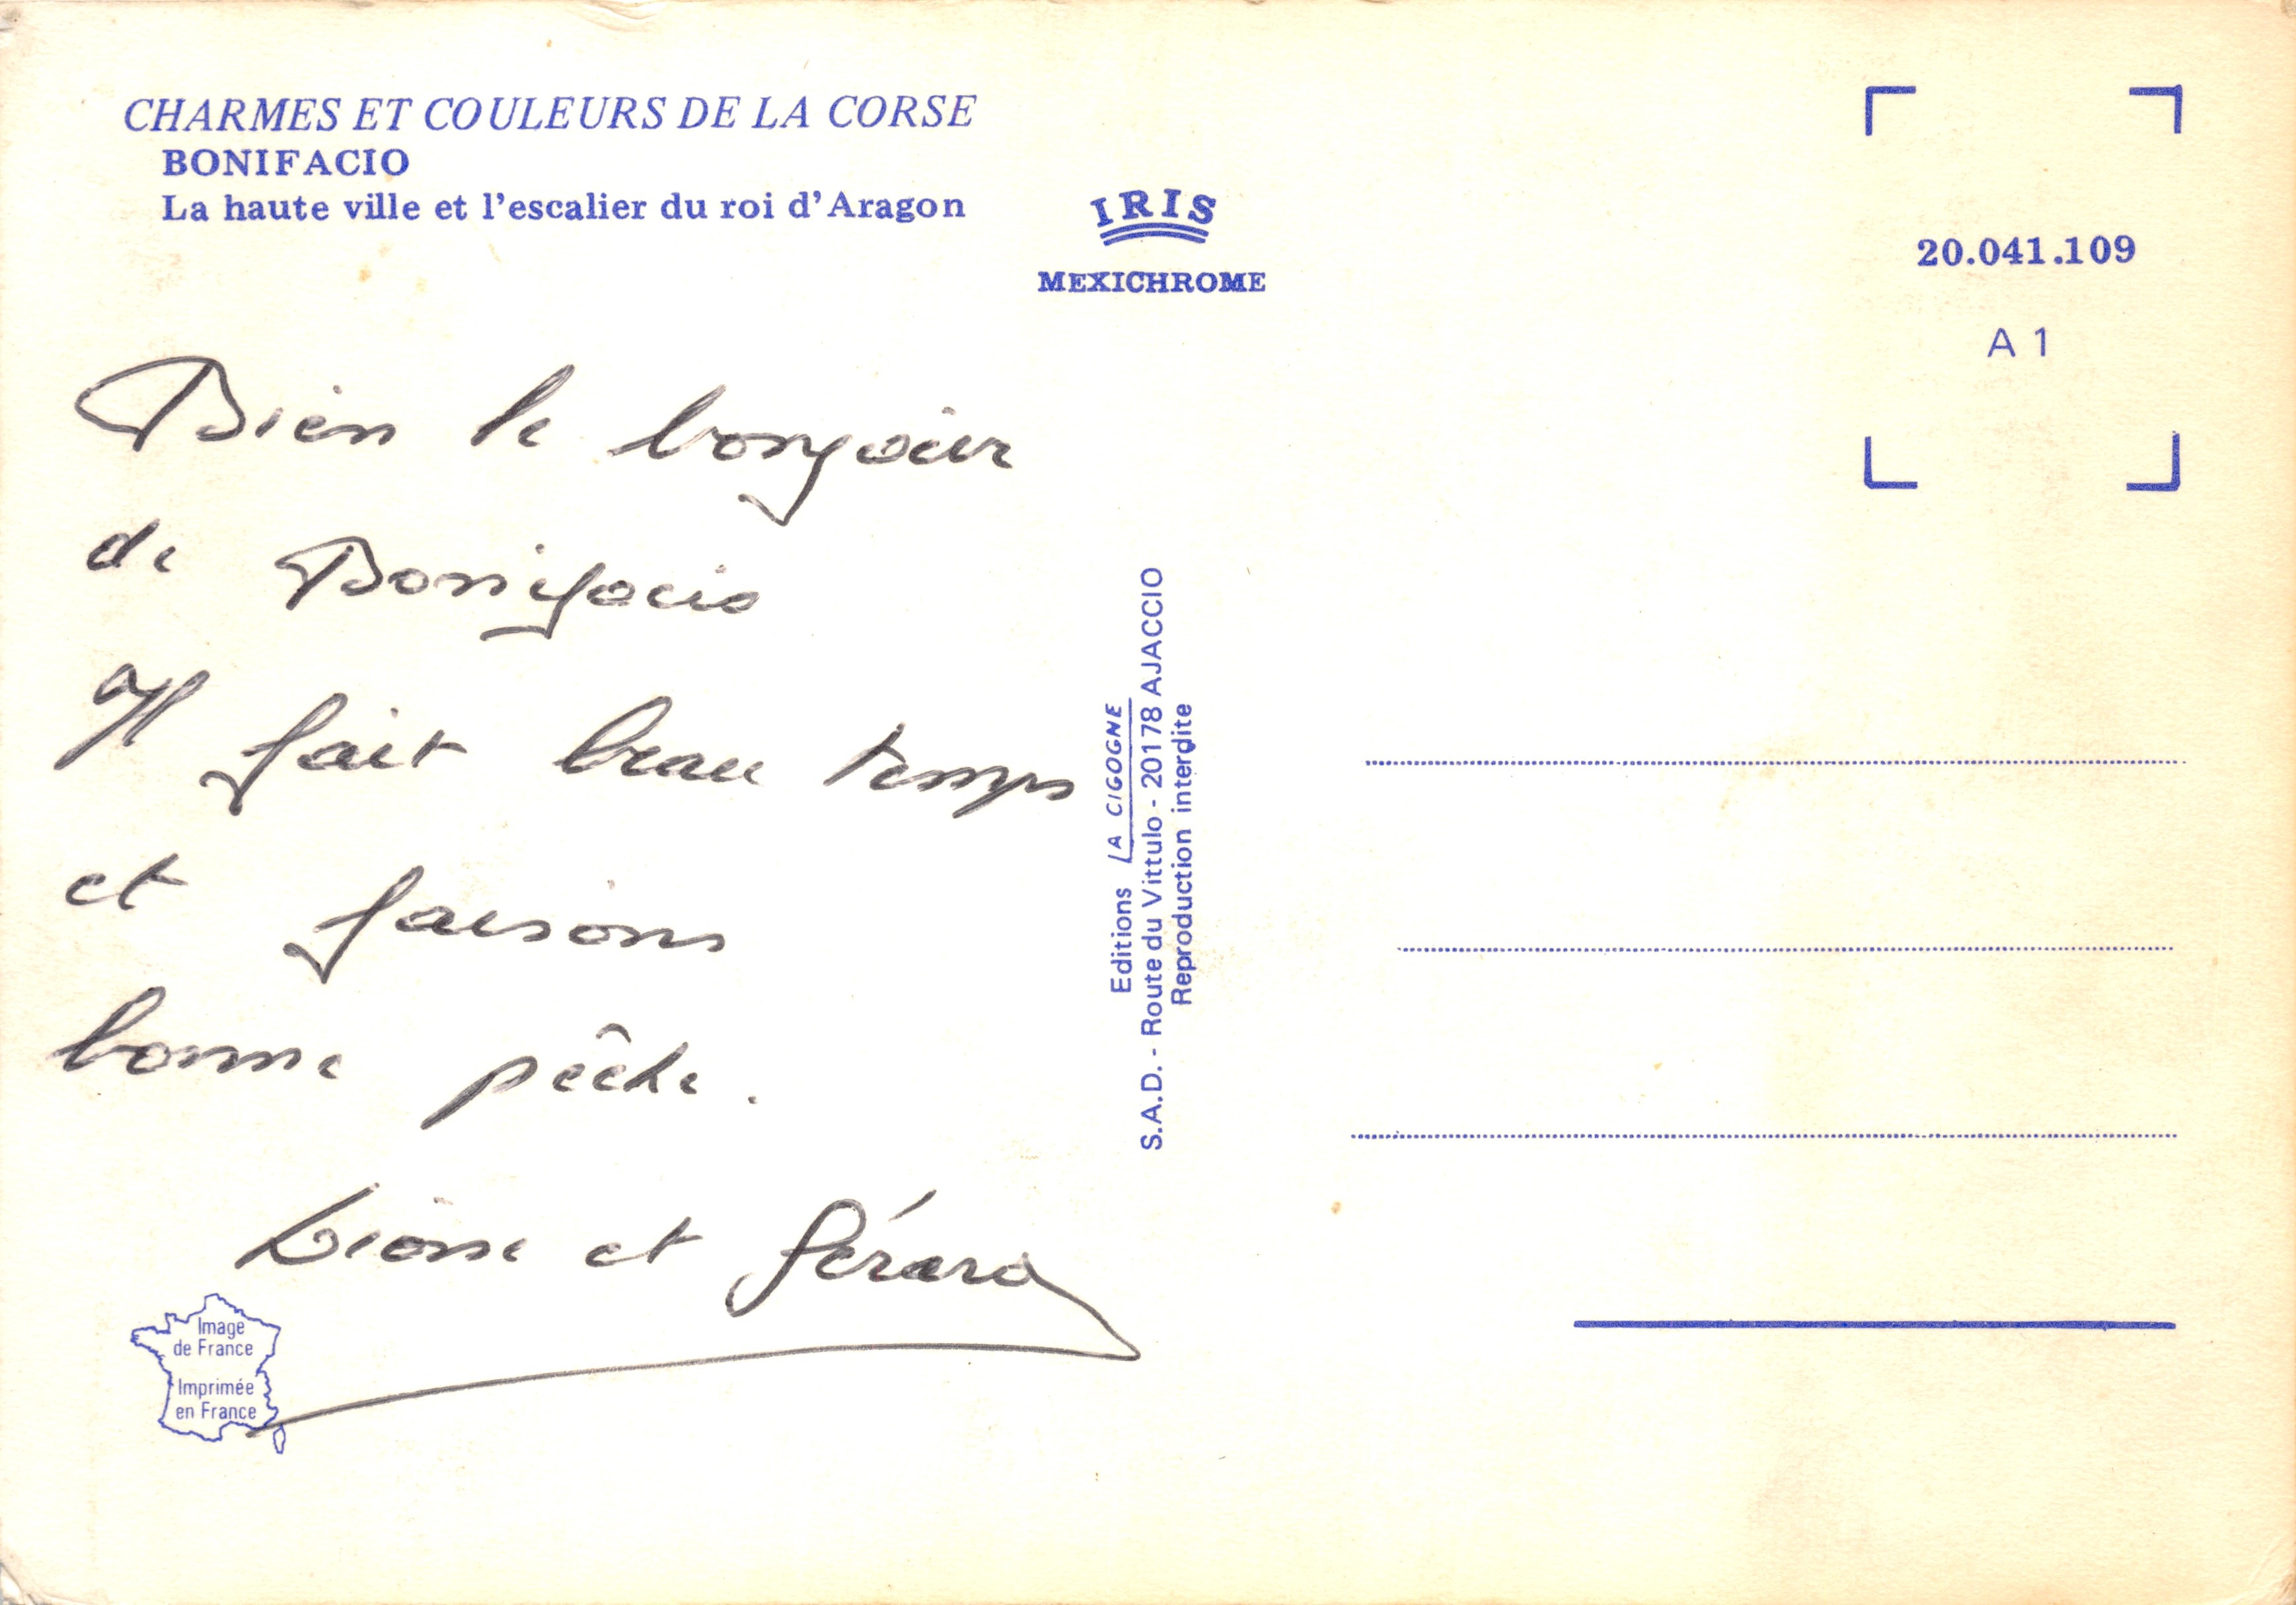 CHARMES ET COULEURS DE LA CORSE
BONIFACIO
La haute ville et l'escalier du roi d'Aragon
IRIS
MEXICHROME
20.041.109
A 1
Bien le bonjour
de Bonifacio
Il fait beau temps
et faisons
bonne pêche.
et Gérard
Editions LA CIGOGNE
S.A.D. - Route du Vittulo - 20178 AJACCIO
Reproduction interdite
Image
de France
Imprimée
en France